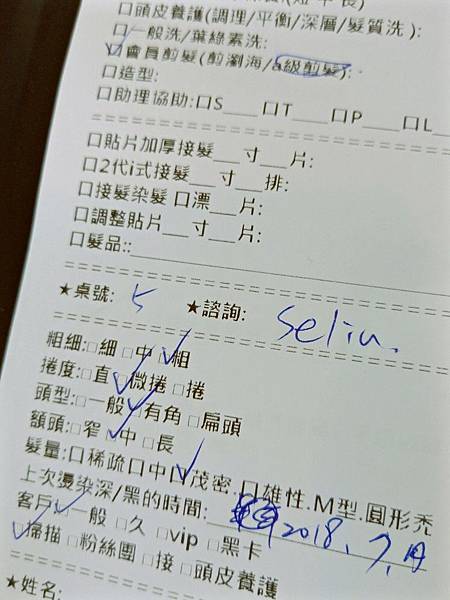 口頭皮養護(調理/平衡/深層/髮質洗):
口一般洗/葉綠素洗:
口會員剪髮(剪瀏海/a級剪髮):
口造型:
口助理協助:口S___ 口T___口P___口L
口貼片加厚接髮__寸__片:
口2代i式接髮__寸__排:
口接髮染髮 口漂__片:
口調整貼片__寸__片:
口髮品::
★桌號: 5 ★諮詢: Selin.
粗細:□細 □中 □粗
捲度:□直 □微捲 □捲
頭型:□一般 □有角 □扁頭
額頭:□窄 □中 □長
髮量:口稀疏口中口茂密.口雄性.M型.圓形禿
上次燙染深/黑的時間: 2018.
客戶□一般 □久 □vip □黑卡
□掃描 □粉絲團 □接 □頭皮養護
★姓名: